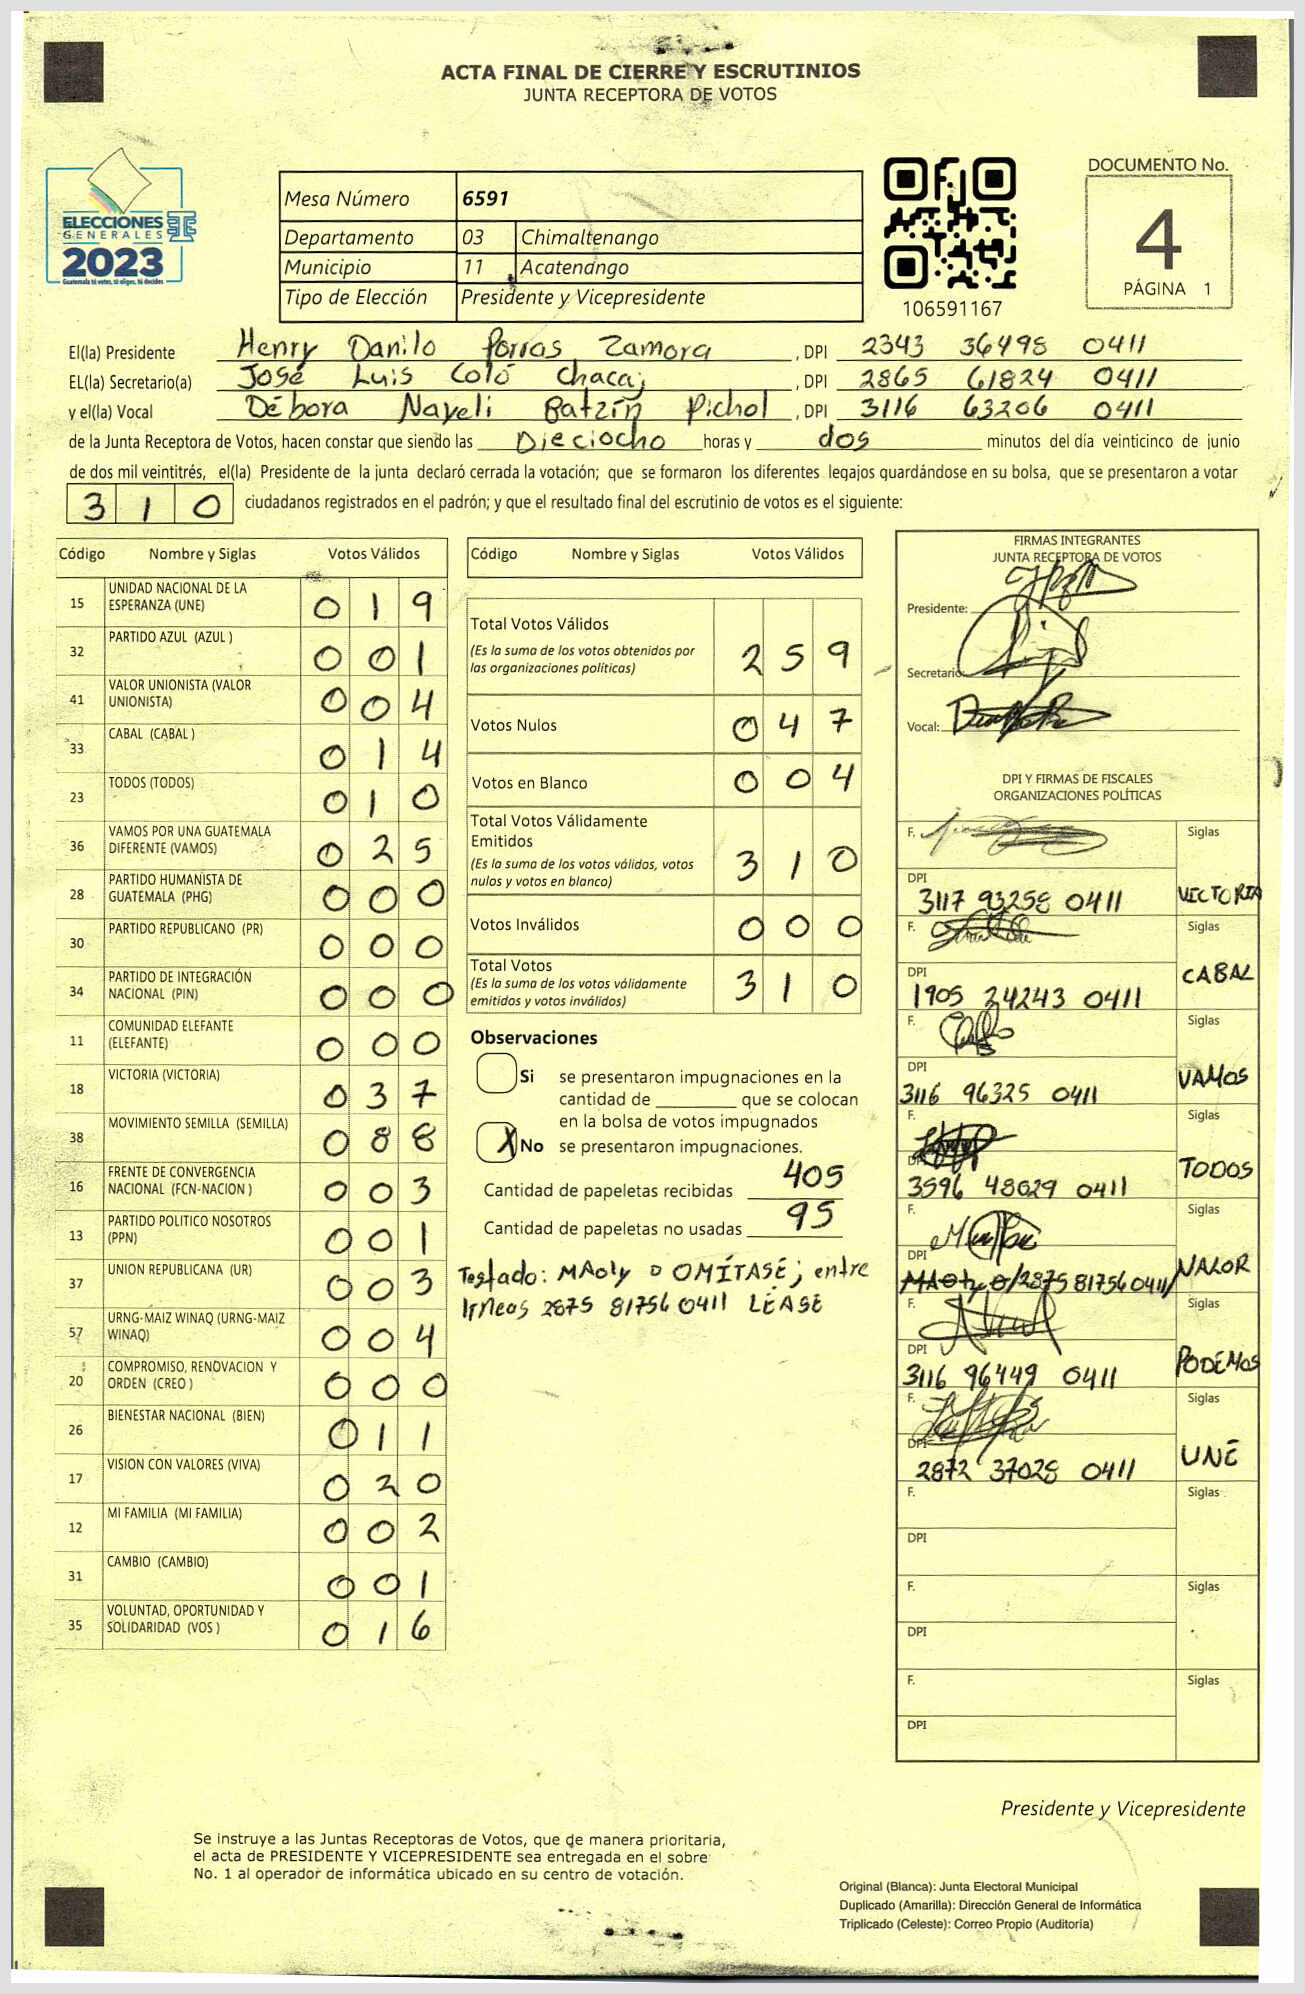 ACTA FINAL DE CIERRE Y ESCRUTINIOS
JUNTA RECEPTORA DE VOTOS
ELECCIONES
GENERALES
2023
Guatemala tú votes, tú eliges, tú decides
Mesa Número 6591
Departamento 03 Chimaltenango
Municipio 11 Acatenango
Tipo de Elección Presidente y Vicepresidente
106591167
DOCUMENTO No.
4
PÁGINA 1
El(la) Presidente Henry Danilo Porras Zamora, DPI 2343 36498 0411
EL(la) Secretario(a) José Luis Coló Chacaj, DPI 2865 61824 0411
y el(la) Vocal Débora Nayeli Batzín Pichol, DPI 3116 63206 0411
de la Junta Receptora de Votos, hacen constar que siendo las Dieciocho horas y dos minutos del día veinticinco de junio
de dos mil veintitrés, el(la) Presidente de la junta declaró cerrada la votación; que se formaron los diferentes legajos quardándose en su bolsa, que se presentaron a votar
3 1 0 ciudadanos registrados en el padrón; y que el resultado final del escrutinio de votos es el siguiente:
Código Nombre y Siglas Votos Válidos
15 UNIDAD NACIONAL DE LA ESPERANZA (UNE) 0 1 9
32 PARTIDO AZUL (AZUL ) 0 0 1
41 VALOR UNIONISTA (VALOR UNIONISTA) 0 0 4
33 CABAL (CABAL ) 0 1 4
23 TODOS (TODOS) 0 1 0
36 VAMOS POR UNA GUATEMALA DIFERENTE (VAMOS) 0 2 5
28 PARTIDO HUMANISTA DE GUATEMALA (PHG) 0 0 0
30 PARTIDO REPUBLICANO (PR) 0 0 0
34 PARTIDO DE INTEGRACIÓN NACIONAL (PIN) 0 0 0
11 COMUNIDAD ELEFANTE (ELEFANTE) 0 0 0
18 VICTORIA (VICTORIA) 0 3 7
38 MOVIMIENTO SEMILLA (SEMILLA) 0 8 8
16 FRENTE DE CONVERGENCIA NACIONAL (FCN-NACION ) 0 0 3
13 PARTIDO POLITICO NOSOTROS (PPN) 0 0 1
37 UNION REPUBLICANA (UR) 0 0 3
57 URNG-MAIZ WINAQ (URNG-MAIZ WINAQ) 0 0 4
20 COMPROMISO, RENOVACION Y ORDEN (CREO ) 0 0 0
26 BIENESTAR NACIONAL (BIEN) 0 1 1
17 VISION CON VALORES (VIVA) 0 2 0
12 MI FAMILIA (MI FAMILIA) 0 0 2
31 CAMBIO (CAMBIO) 0 0 1
35 VOLUNTAD, OPORTUNIDAD Y SOLIDARIDAD (VOS ) 0 1 6
Código Nombre y Siglas Votos Válidos
Total Votos Válidos
(Es la suma de los votos obtenidos por
las organizaciones políticas) 2 5 9
Votos Nulos 0 4 7
Votos en Blanco 0 0 4
Total Votos Válidamente
Emitidos
(Es la suma de los votos válidos, votos
nulos y votos en blanco) 3 1 0
Votos Inválidos 0 0 0
Total Votos
(Es la suma de los votos válidamente
emitidos y votos inválidos) 3 1 0
Observaciones
Si se presentaron impugnaciones en la
cantidad de ________ que se colocan
en la bolsa de votos impugnados
X No se presentaron impugnaciones.
Cantidad de papeletas recibidas 405
Cantidad de papeletas no usadas 95
Testado: MAoly o OMÍTASE; entre
líneas 2875 81756 0411 LÉASE
FIRMAS INTEGRANTES
JUNTA RECEPTORA DE VOTOS
Presidente:
Secretario:
Vocal:
DPI Y FIRMAS DE FISCALES
ORGANIZACIONES POLÍTICAS
F. Siglas
DPI 3117 93258 0411 VICTORIA
F. Siglas
DPI 1905 24243 0411 CABAL
F. Siglas
DPI 3116 96325 0411 VAMOS
F. Siglas
DPI 3596 48029 0411 TODOS
F. Siglas
DPI 2875 81756 0411 VALOR
F. Siglas
DPI 3116 96449 0411 PODEMOS
F. Siglas
DPI 2872 37028 0411 UNE
F. Siglas
DPI
F. Siglas
DPI
F. Siglas
DPI
Presidente y Vicepresidente
Se instruye a las Juntas Receptoras de Votos, que de manera prioritaria,
el acta de PRESIDENTE Y VICEPRESIDENTE sea entregada en el sobre
No. 1 al operador de informática ubicado en su centro de votación.
Original (Blanca): Junta Electoral Municipal
Duplicado (Amarilla): Dirección General de Informática
Triplicado (Celeste): Correo Propio (Auditoría)